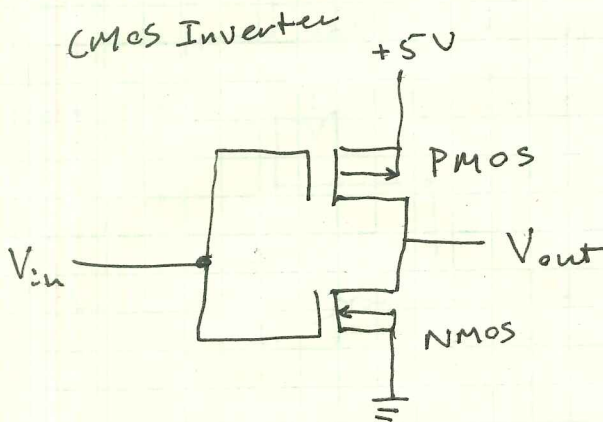 CMOS Inverter
+5V
PMOS
Vin
Vout
NMOS